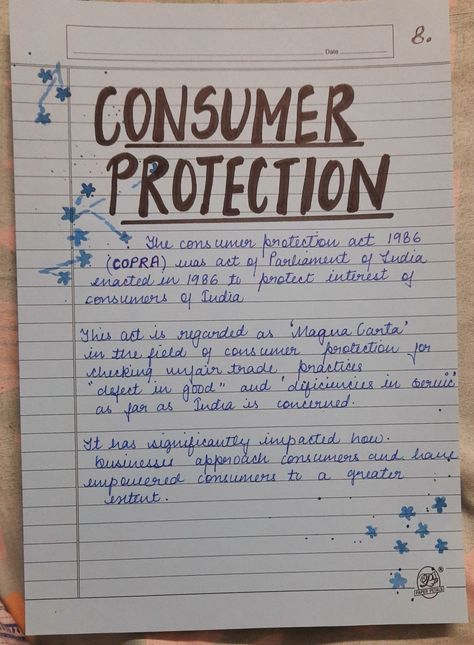 Date
8.
CONSUMER
PROTECTION
The consumer protection act 1986
(COPRA) was act of Parliament of India
enacted in 1986 to protect interest of
consumers of India
This act is regarded as 'Magna Carta'
in the field of consumer protection for
checking unfair trade practices
"defect in good" and 'dificiencies in servic'
as far as India is concerned.
It has significantly impacted how
businesses approach consumers and have
empowered consumers to a greater
entent.
PAPER PETALS